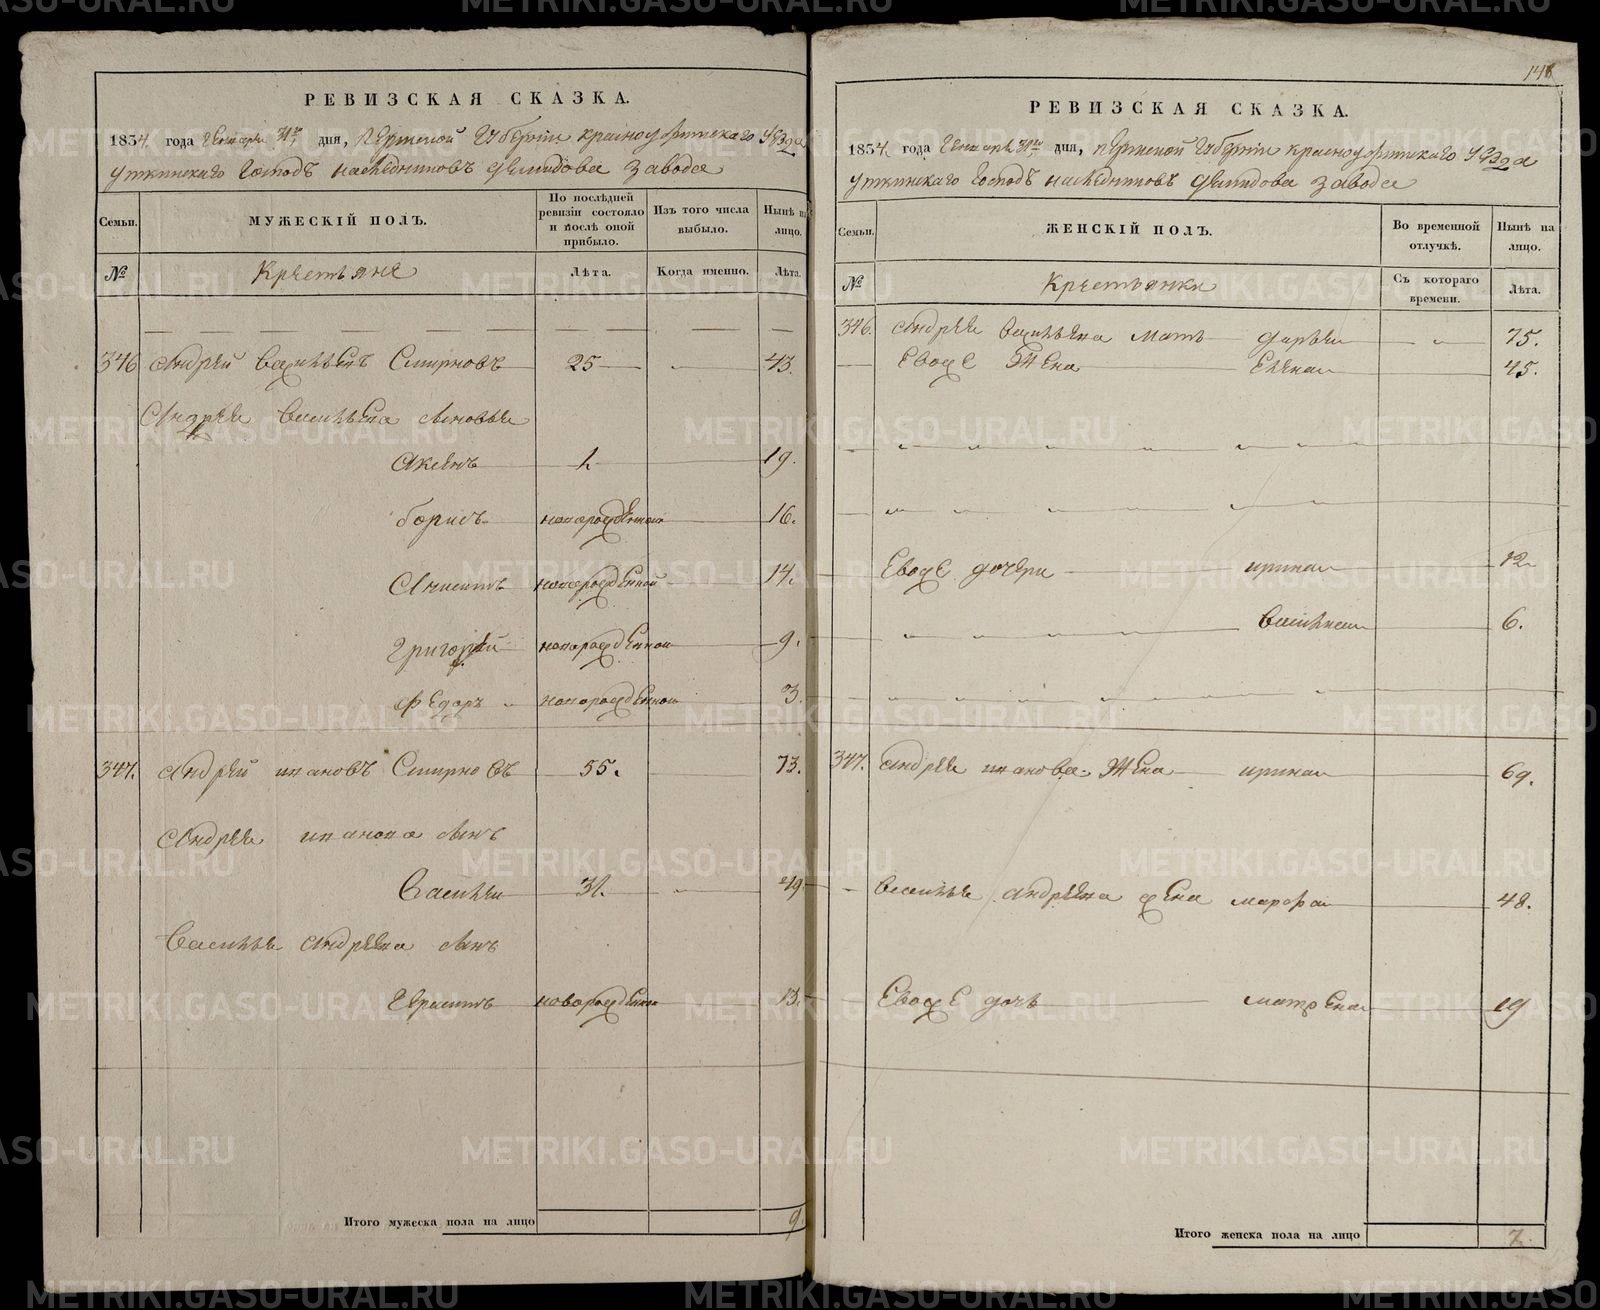 РЕВИЗСКАЯ СКАЗКА.
1834 года Генваря 31го дня, Пермской Губернiи Красноуфимскаго Уѣзда
Уткинскаго Господъ наслѣдниковъ Демидова Завода
Семьи.
МУЖЕСКІЙ ПОЛЪ.
По послѣдней ревизіи состояло и послѣ оной прибыло.
Изъ того числа выбыло.
Нынѣ на лицо.
№
Крестьяне
Лѣта.
Когда именно.
Лѣта.
346 Андрей Васильевъ Смирновъ 25 43.
Андрея Васильева сыновья
Аксенъ 1. 19.
Борисъ новорожденной 16.
Анисимъ новорожденной 14.
Григорей новорожденной 9.
Федоръ новорожденной 3.
347. Андрей Ивановъ Смирновъ 55. 73.
Андрея Иванова сынъ
Василей 31. 49
Василья Андреева сынъ
новорожденной 13.
Итого мужеска пола на лицо 9.
148
РЕВИЗСКАЯ СКАЗКА.
1834 года Генваря 31го дня, Пермской Губернiи Красноуфимскаго Уѣзда
Уткинскаго Господъ наслѣдниковъ Демидова Завода
Семьи.
ЖЕНСКІЙ ПОЛЪ.
Во временной отлучкѣ.
Нынѣ на лицо.
№
Крестьянки
Съ котораго времени.
Лѣта.
346. Андрея Васильева мать Дарья 75.
Евоже жена Елена 45.
Евоже дочери Ирина 12
6.
347. Андрея Иванова жена Ирина 69.
Василья Андреева жена Марфа 48.
Евоже дочь Матрена 19
Итого женска пола на лицо 7.
METRIKI.GASO-URAL.RU